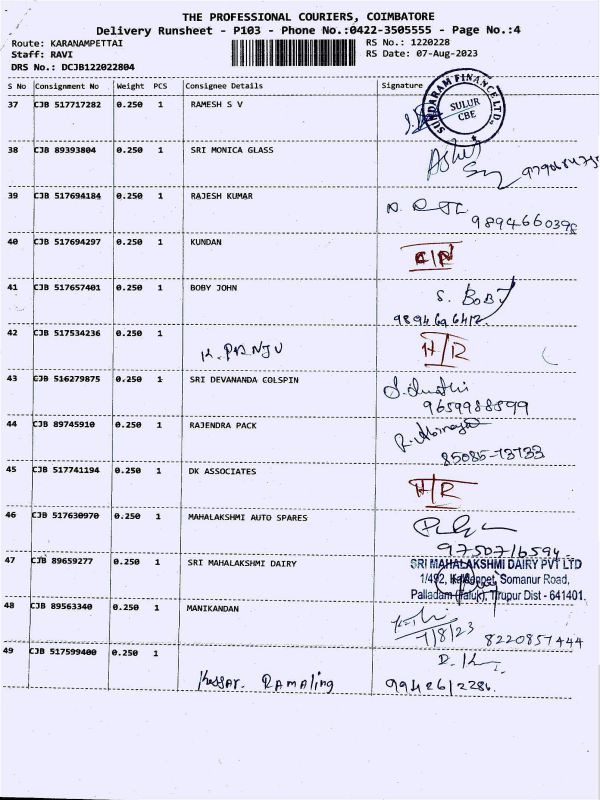 THE PROFESSIONAL COURIERS, COIMBATORE
Delivery Runsheet - P103 - Phone No.:0422-3505555 - Page No.:4
Route: KARANAMPETTAI RS No.: 1220228
Staff: RAVI RS Date: 07-Aug-2023
DRS No.: DCJB122022804
S No Consignment No Weight PCS Consignee Details Signature
37 CJB 517717282 0.250 1 RAMESH S V
SUNDARAM FINANCE LTD.,
SULUR
CBE
38 CJB 89393804 0.250 1 SRI MONICA GLASS
39 CJB 517694184 0.250 1 RAJESH KUMAR
9894660398
40 CJB 517694297 0.250 1 KUNDAN
41 CJB 517657401 0.250 1 BOBY JOHN
S. BOBY
42 CJB 517534236 0.250 1
K. PRANJU H/R
43 CJB 516279875 0.250 1 SRI DEVANANDA COLSPIN
9659988599
44 CJB 89745910 0.250 1 RAJENDRA PACK
85085-73733
45 CJB 517741194 0.250 1 DK ASSOCIATES
H/R
46 CJB 517630970 0.250 1 MAHALAKSHMI AUTO SPARES
9750716594
47 CJB 89659277 0.250 1 SRI MAHALAKSHMI DAIRY
SRI MAHALAKSHMI DAIRY PVT LTD
1/492, Somanur Road,
Palladam (Taluk), Tirupur Dist - 641401.
48 CJB 89563340 0.250 1 MANIKANDAN
7/8/23 8220857444
49 CJB 517599400 0.250 1
Ramaling 9942612286.